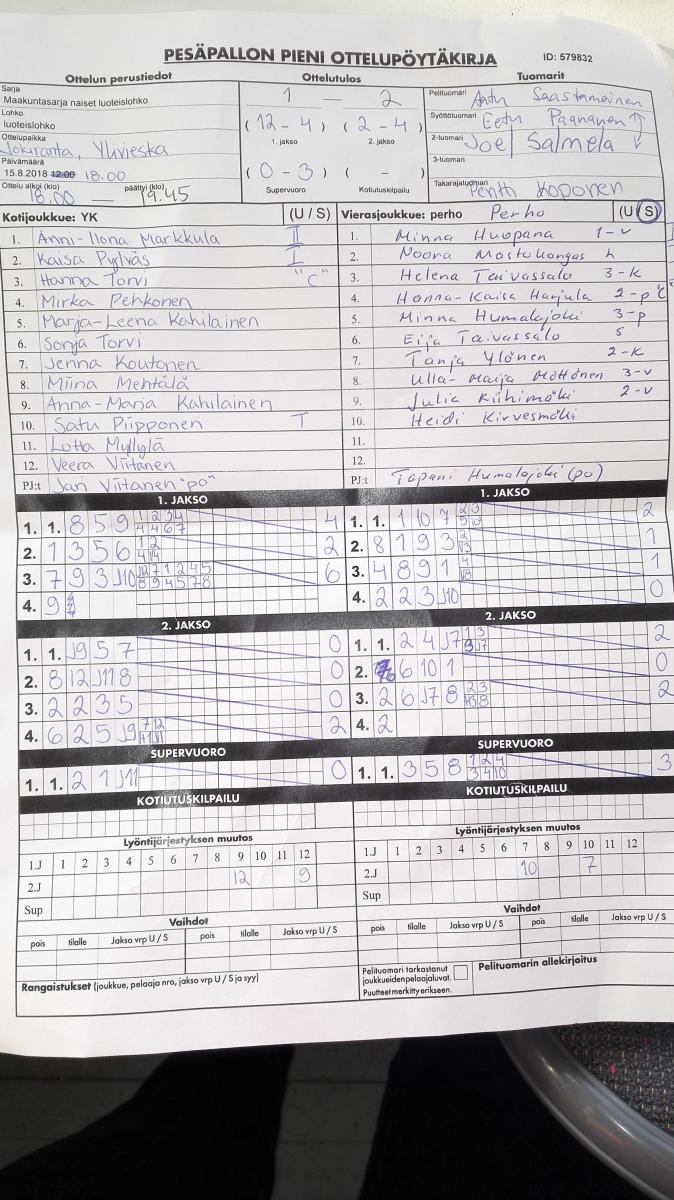 PESÄPALLON PIENI OTTELUPÖYTÄKIRJA
ID: 579832
Ottelun perustiedot
Ottelutulos
Tuomarit
Sarja
Maakuntasarja naiset luoteislohko
Lohko
luoteislohko
Ottelupaikka
Jokiranta, Ylivieska
Päivämäärä
15.8.2018 12:00 18.00
Ottelu alkoi (klo) päättyi (klo)
18.00 — 19.45
1 — 2
(12 - 4) (2 - 4)
1. jakso 2. jakso
(0 - 3) ( - )
Supervuoro Kotiutuskilpailu
Pelituomari Saastamoinen
Syöttötuomari Eetu Paananen
2-tuomari Joel Salmela
3-tuomari
Takarajatuomari Pentti Koponen
Kotijoukkue: YK (U / S)
1. Anni-Ilona Markkula II
2. Kaisa Pylväs I
3. Hanna Torvi "C"
4. Mirka Pehkonen
5. Marja-Leena Kahilainen
6. Sonja Torvi
7. Jenna Koutonen
8. Miina Mehtälä
9. Anna-Marja Kahilainen
10. Satu Piipponen T
11. Lotta Myllylä
12. Veera Viitanen
PJ:t Jari Viitanen "po"
Vierasjoukkue: perho Perho (U / S)
1. Minna Huopana 1-v
2. Noora Mastokangas h
3. Helena Taivassalo 3-k
4. Hanna-Kaisa Harjula 2-p C
5. Minna Humalajoki 3-p
6. Eija Taivassalo S
7. Tanja Ylönen 2-k
8. Ulla-Maija Möttönen 3-v
9. Julia Riihimäki 2-v
10. Heidi Kirvesmäki
11.
12.
PJ:t Tapani Humalajoki (po)
1. JAKSO
1. 1. 8 5 9 1 2 3 4 4
4 4 6 7
2. 1 3 5 6 1 2 2
3. 7 9 3 J10 12 7 1 2 4 5 6
8 9 4 5 7 8
4. 9
1. JAKSO
1. 1. 1 10 7 2 3 2
5 10
2. 8 1 9 3 2 1
3. 4 8 9 1 4 1
4. 2 2 3 J10 0
2. JAKSO
1. 1. J9 5 7 0
2. 8 12 J11 8 0
3. 2 2 3 5 0
4. 6 2 5 J9 7 12 2
2. JAKSO
1. 1. 2 4 J7 1 3 2
2. 6 10 1 0
3. 2 6 J7 8 2 3 2
4. 2
SUPERVUORO
1. 1. 2 1 J11 0
SUPERVUORO
1. 1. 3 5 8 1 2 4 3
3 4 10
KOTIUTUSKILPAILU
KOTIUTUSKILPAILU
Lyöntijärjestyksen muutos
1.J 1 2 3 4 5 6 7 8 9 10 11 12
2.J 12 9
Sup
Lyöntijärjestyksen muutos
1.J 1 2 3 4 5 6 7 8 9 10 11 12
2.J 10 7
Sup
Vaihdot
pois tilalle Jakso vrp U / S pois tilalle Jakso vrp U / S
Vaihdot
pois tilalle Jakso vrp U / S pois tilalle Jakso vrp U / S
Rangaistukset (joukkue, pelaaja nro, jakso vrp U / S ja syy)
Pelituomari tarkastanut
joukkueiden pelaajaluvat.
Puutteet merkitty erikseen.
Pelituomarin allekirjoitus